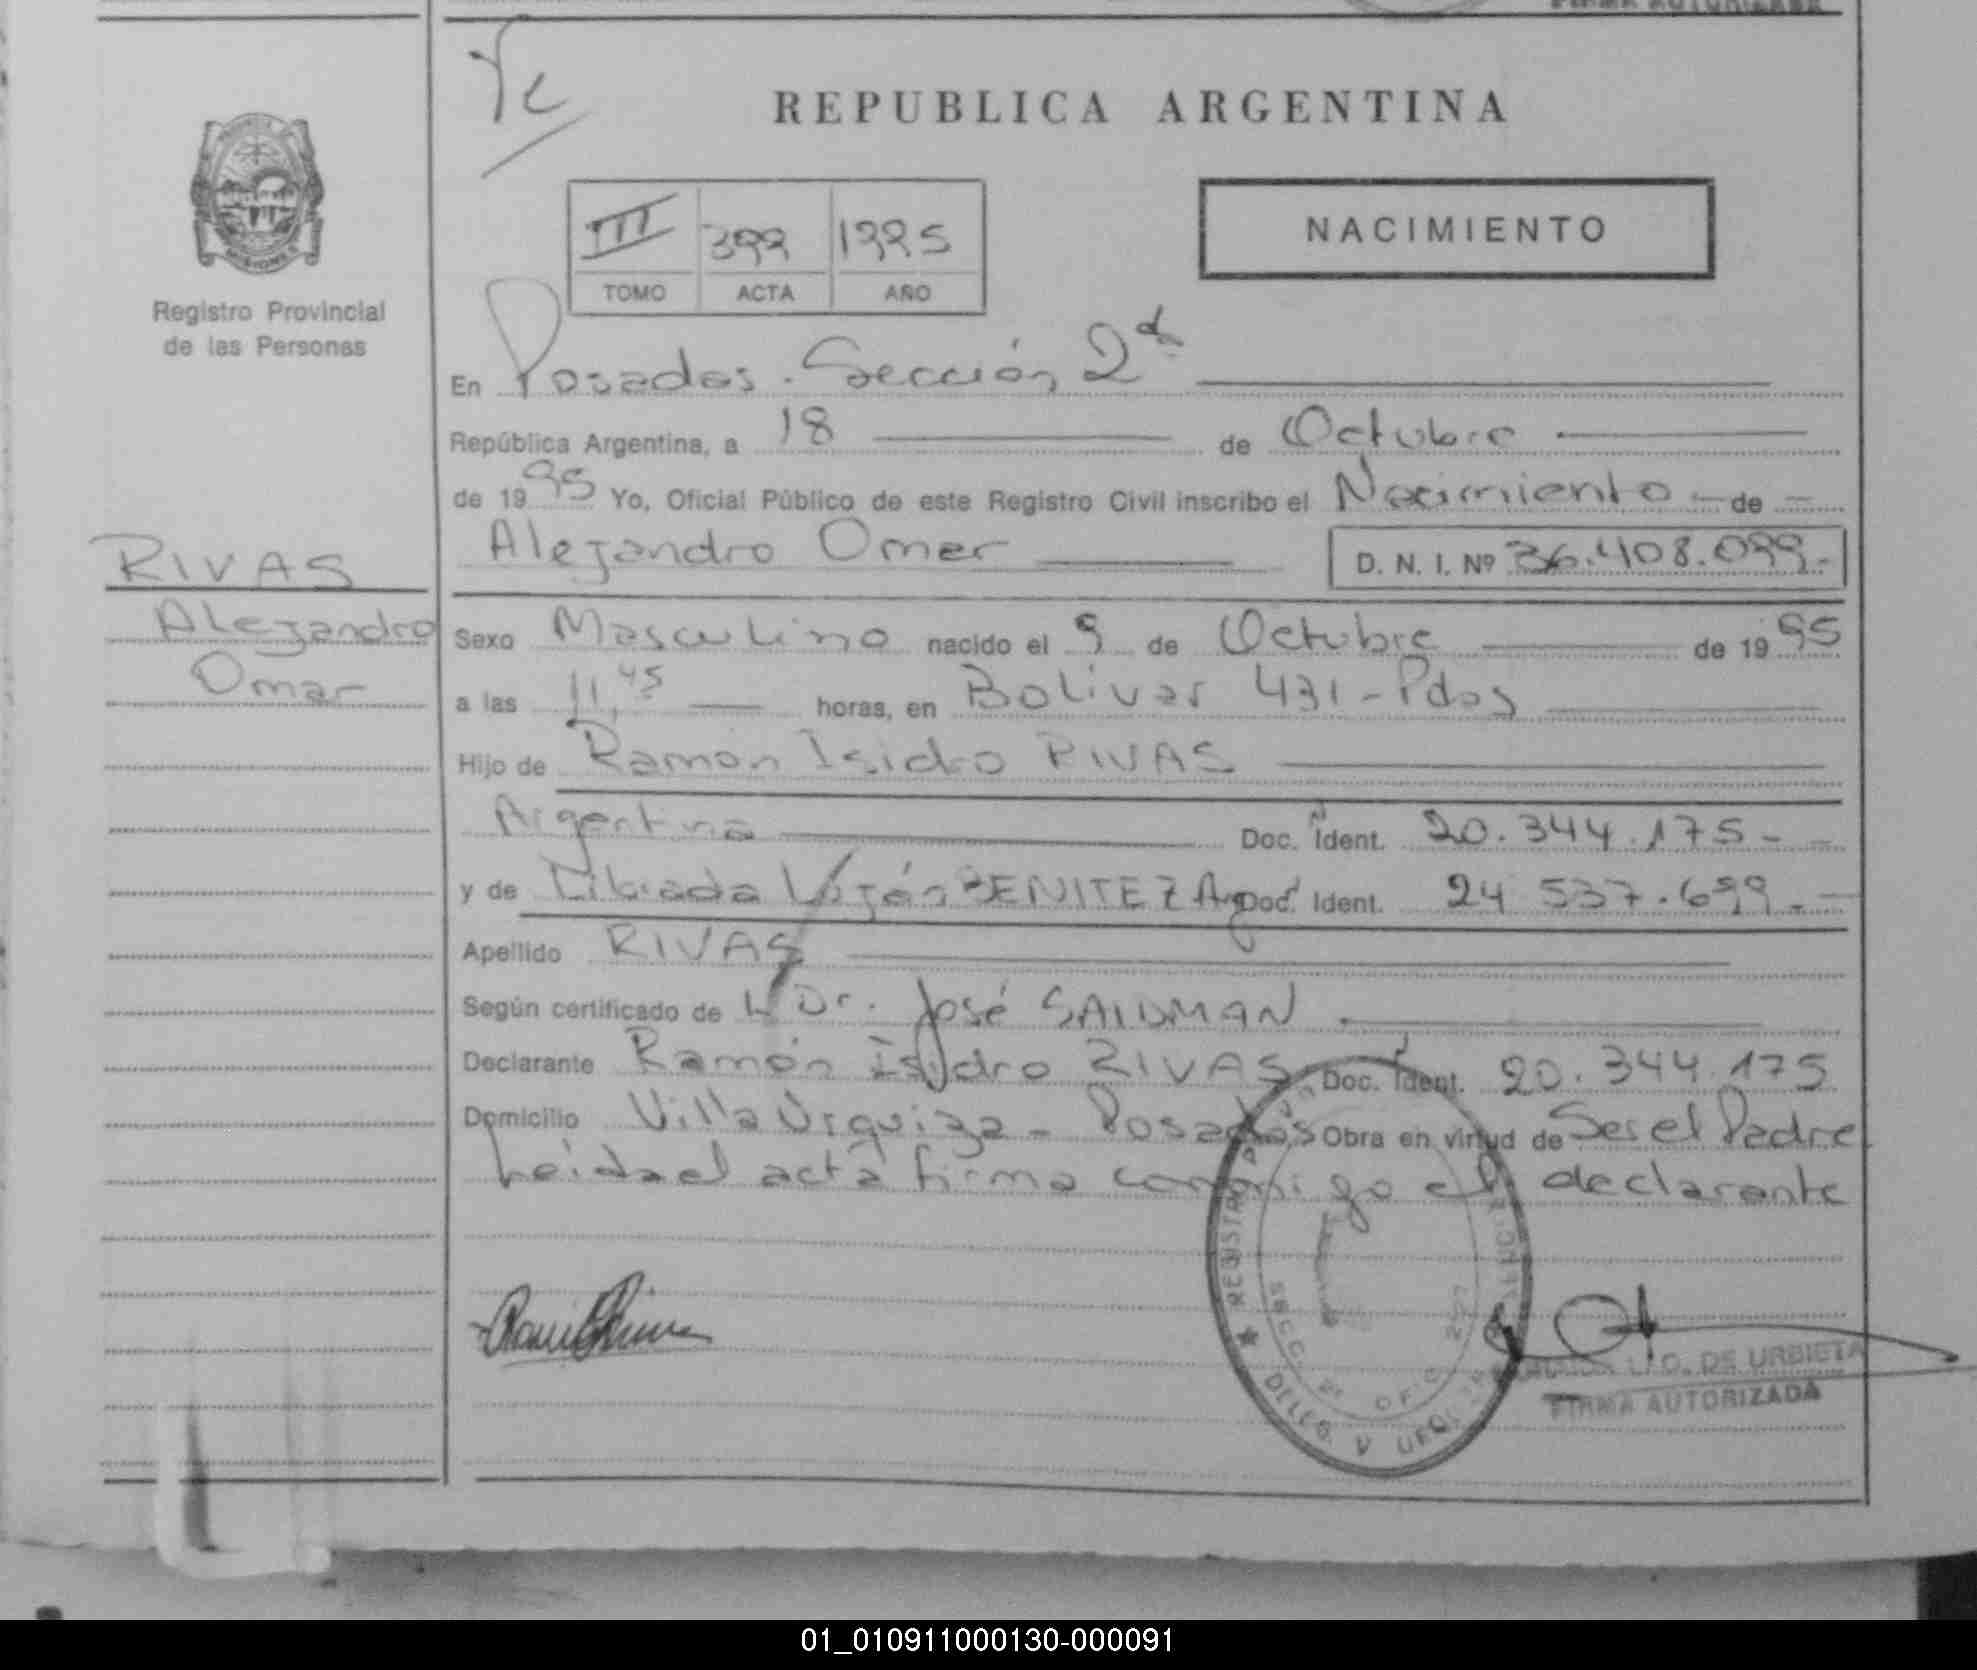 FIRMA AUTORIZADA
REPUBLICA ARGENTINA
NACIMIENTO
III 399 1995
TOMO ACTA AÑO
MISIONES
Registro Provincial
de las Personas
En Posadas. Sección 2da
República Argentina, a 18 de Octubre
de 1995 Yo, Oficial Público de este Registro Civil inscribo el Nacimiento de
Alejandro Omar D. N. I. Nº 36.408.099.-
RIVAS
Alejandro
Omar
Sexo Masculino nacido el 9 de Octubre de 1995
a las 11,45 horas, en Bolívar 431 - Pdas
Hijo de Ramón Isidro RIVAS
Argentina Doc. Ident. 20.344.175 -
y de Librada Luján BENITEZ Arg Doc. Ident. 24 537.699.-
Apellido RIVAS
Según certificado de Dr. José SAIDMAN.
Declarante Ramón Isidro RIVAS Doc. Ident. 20.344.175
Domicilio Villa Urquiza - Posadas Obra en virtud de Ser el Padre
Leida el acta firma conmigo el declarante
REGISTRO
SECC. 2ª OFIC.
DELEG. V
L. O. DE URBIETA
FIRMA AUTORIZADA
01_010911000130-000091